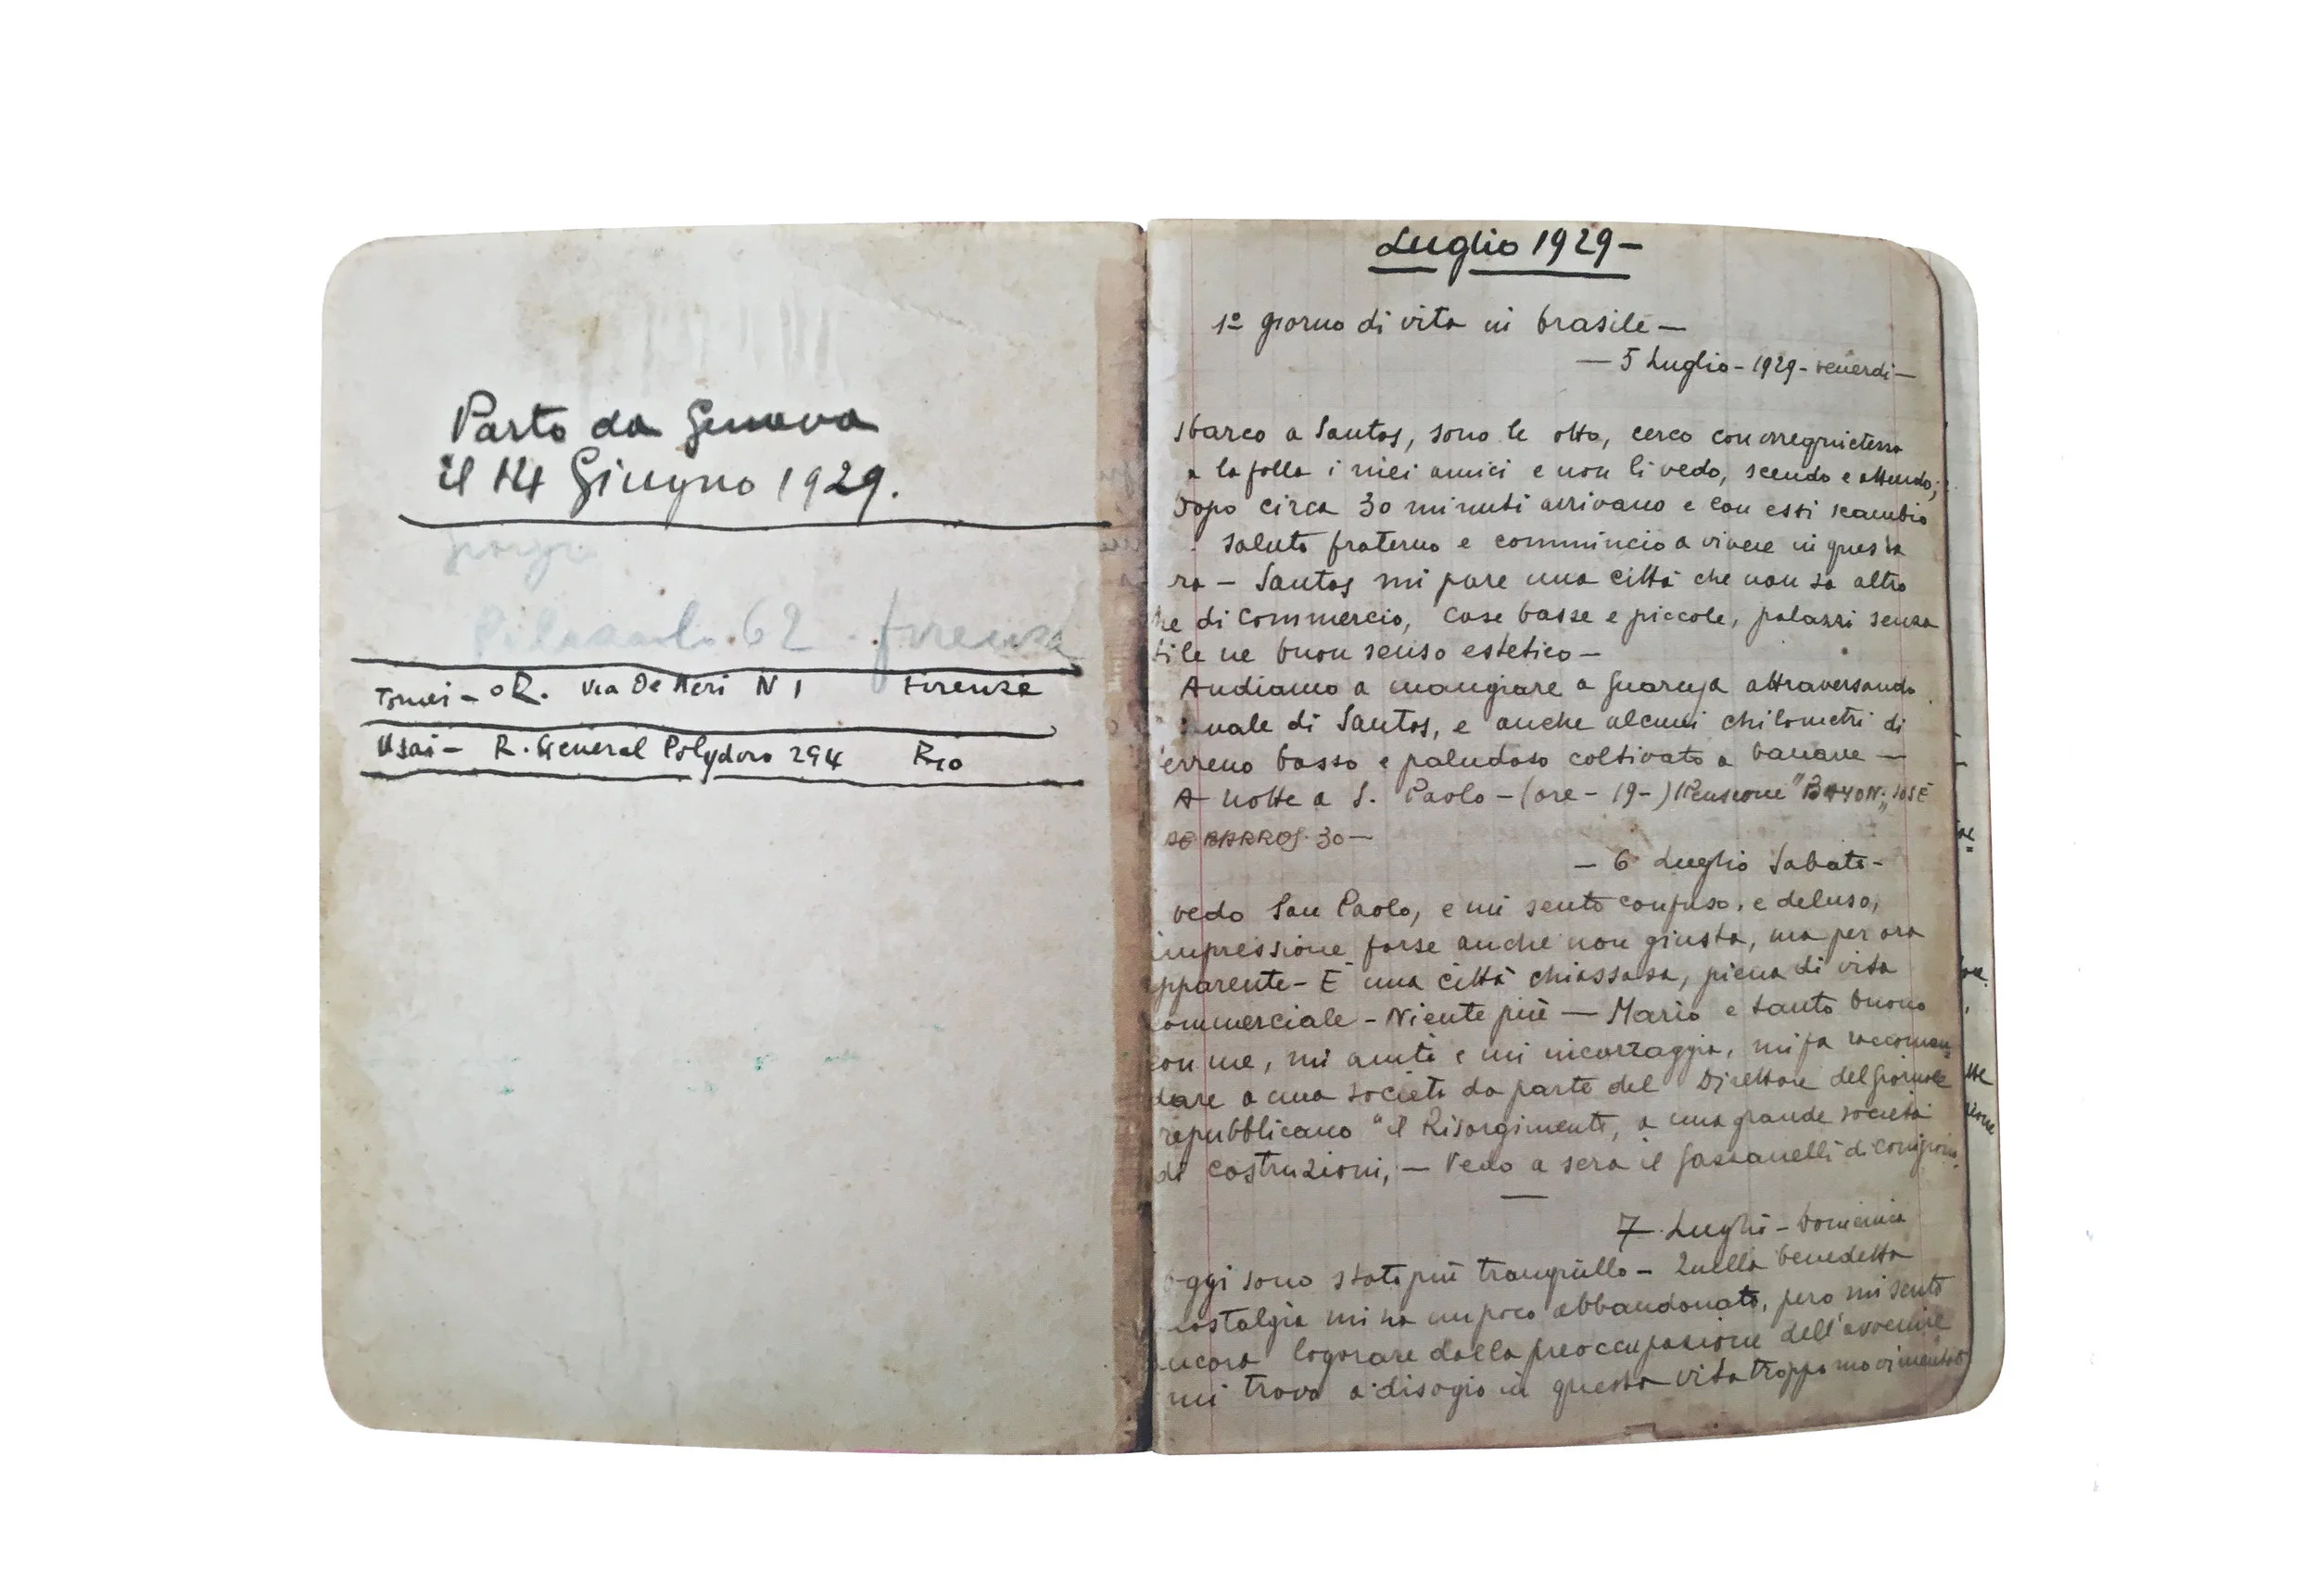 Parto da Genova
il 14 Giugno 1929.
62 - firenze
Tomei - R. Via De Neri N 1 Firenze
Usai - R. General Polydoro 294 Rio
Luglio 1929 -
1º giorno di vita in brasile -
- 5 Luglio - 1929 - venerdi -
sbarco a Santos, sono le otto, cerco con
a la folla i miei amici e non li vedo, scendo e attendo;
Dopo circa 30 minuti arrivano e con essi scambio
saluto fraterno e commincio a vivere in questa
ra - Santos mi pare una città che non sa altro
he di Commercio, case basse e piccole, palazzi senza
tile ne buon senso estetico -
Andiamo a mangiare a Guaruja attraversando
nale di Santos, e anche alcuni chilometri di
erreno basso e paludoso coltivato a banane -
A notte a S. Paolo - (ore - 19 -) Pensione " JOSÉ
DE BARROS. 30 -
- 6 Luglio Sabato -
vedo San Paolo, e mi sento confuso, e deluso,
impressione forse anche non giusta, ma per ora
pparente - E una città chiassosa, piena di vita
ommerciale - Niente più - Mario e tanto buono
con me, mi aiuta e mi incoraggia, mi fa raccoman
dare a una società da parte del Direttore del giornale
repubblicano "il Risorgimento, a una grande società
di costruzioni, - Vedo a sera il di
7 Luglio - Domenica
oggi sono stato più tranquillo - Quella benedetta
nostalgia mi ha un poco abbandonato, pero mi sento
ncora logorare dalla preoccupazione dell'avvenire
mi trovo a disagio in questa vita troppo movimentata